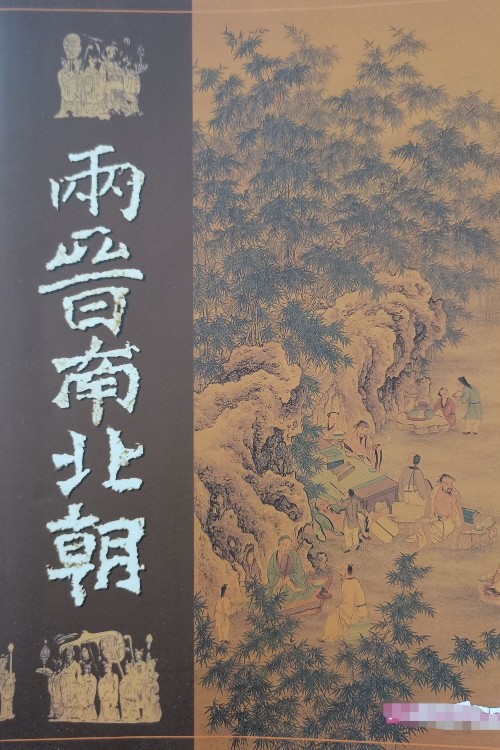 兩晉南北朝